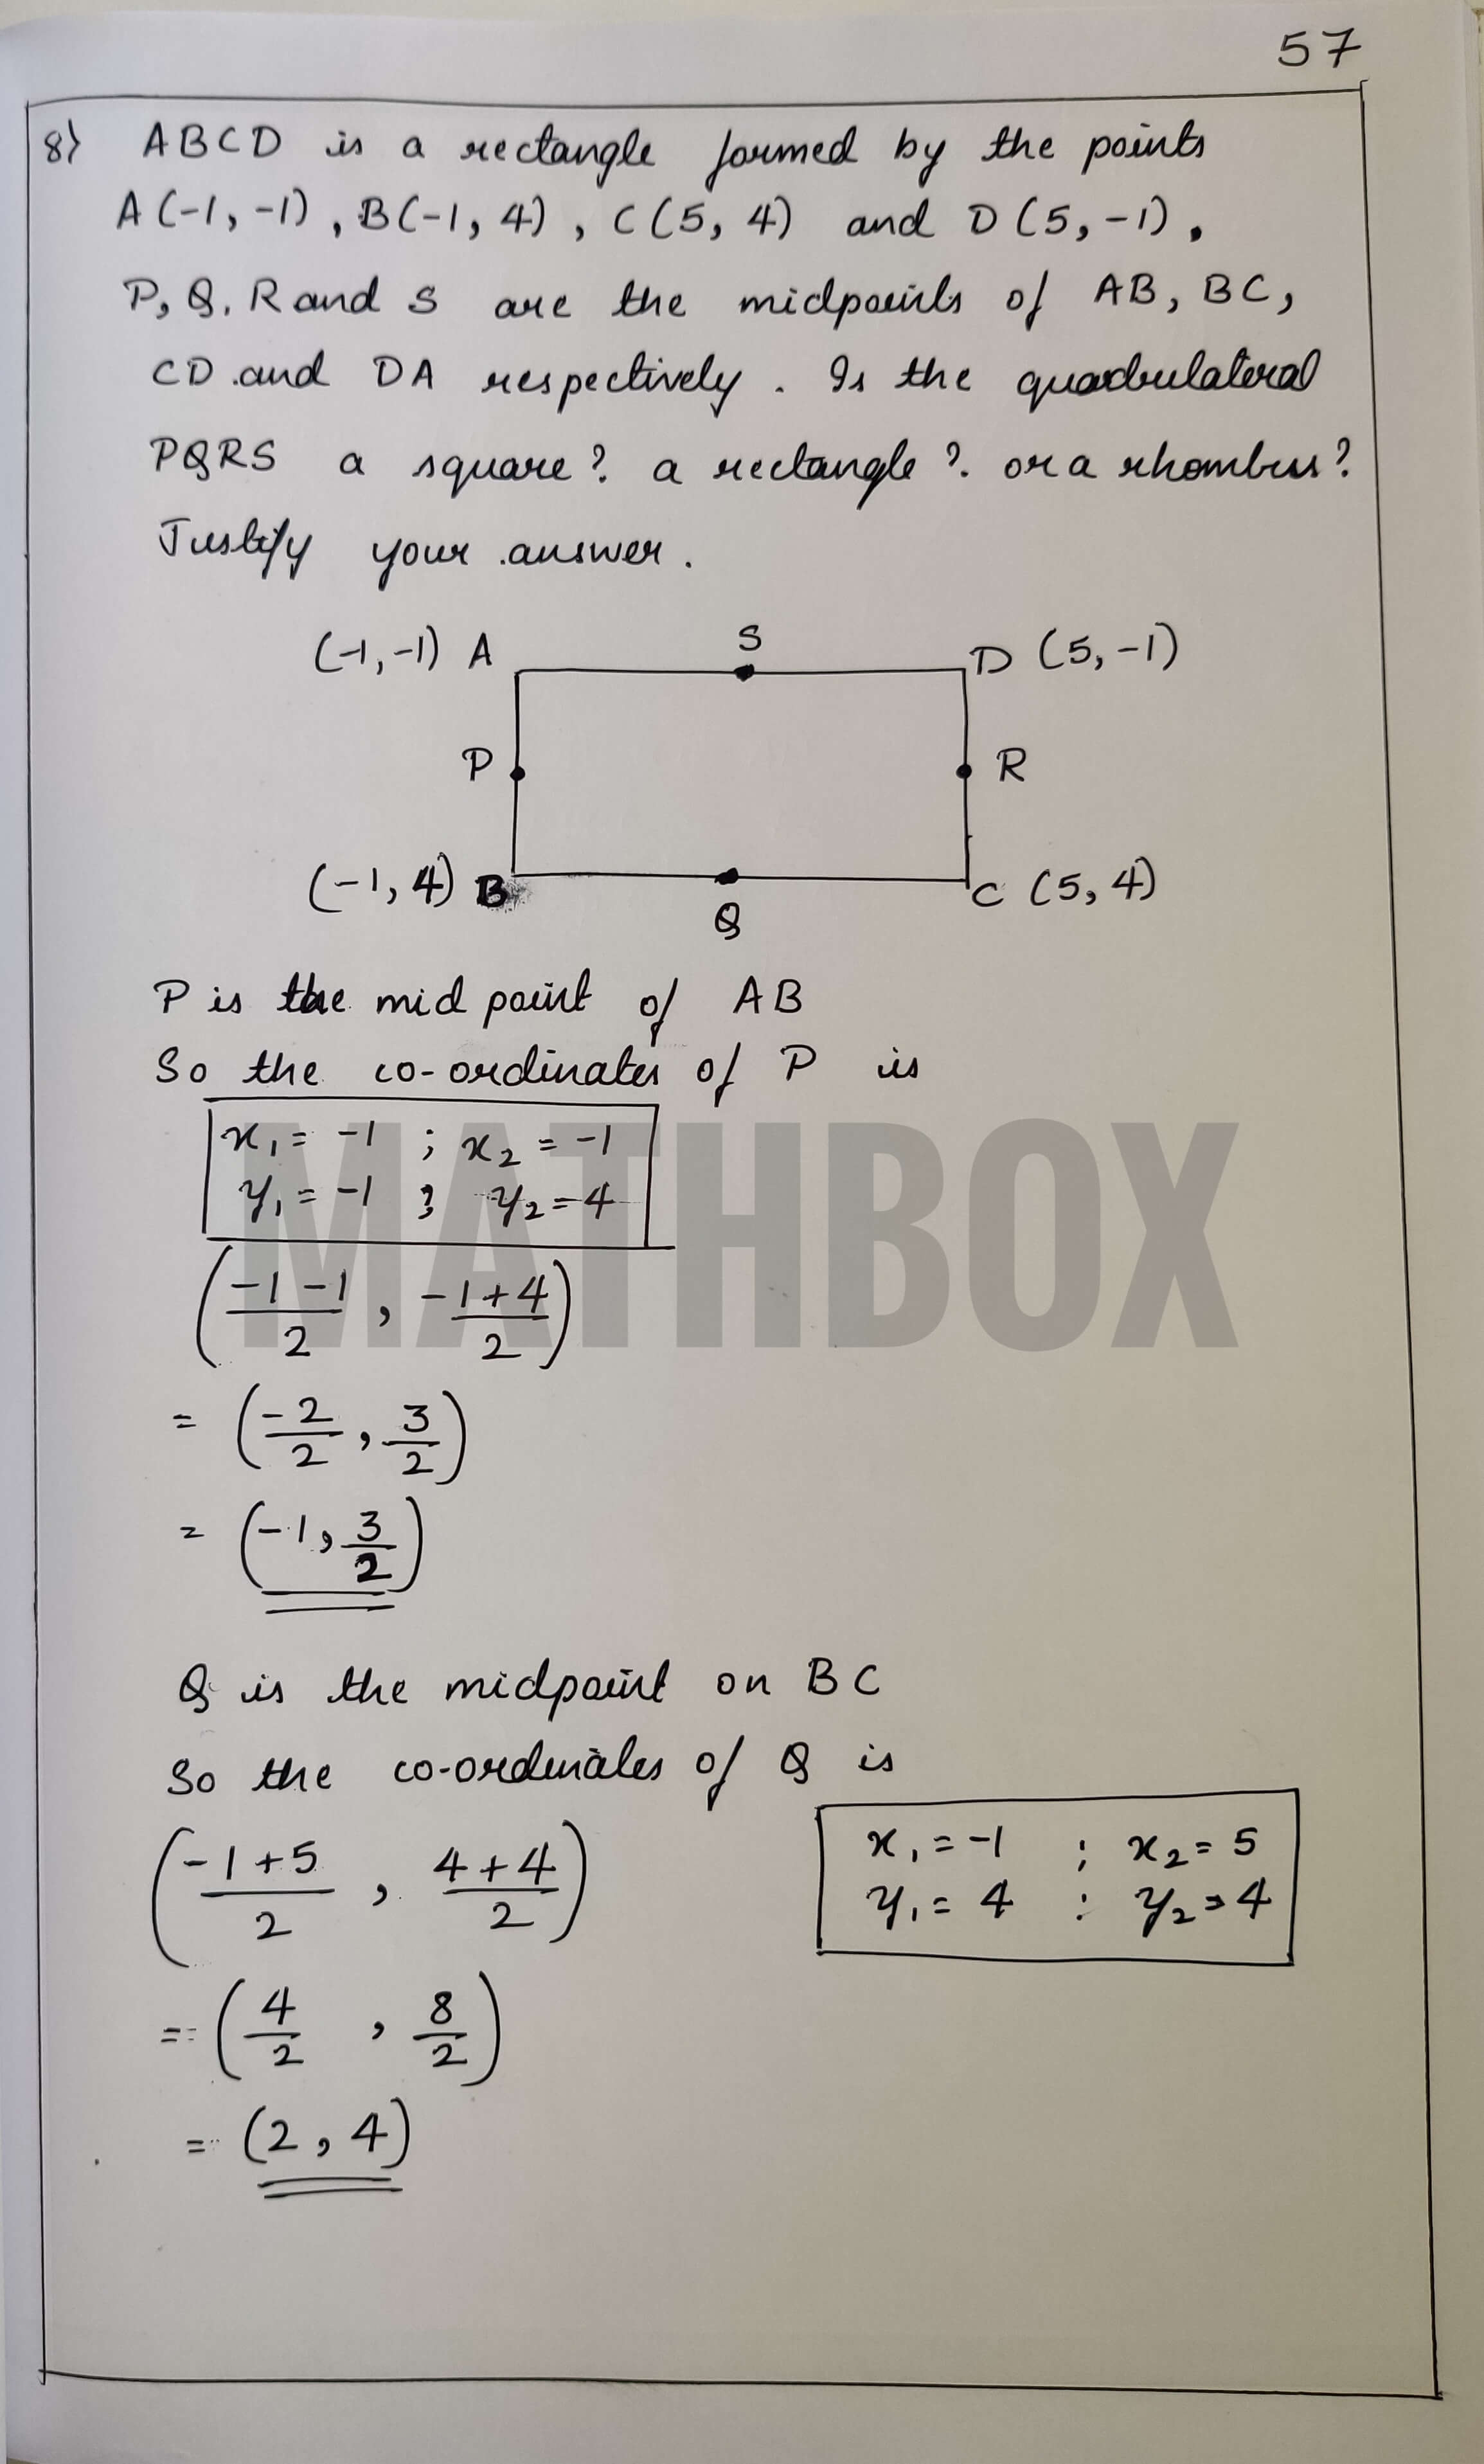 57
8) ABCD is a rectangle formed by the points
A(-1, -1), B(-1, 4), C(5, 4) and D(5, -1).
P, Q, R and S are the midpoints of AB, BC,
CD and DA respectively. Is the quadrilateral
PQRS a square? a rectangle? or a rhombus?
Justify your answer.
(-1, -1) A S D (5, -1)
P R
(-1, 4) B C (5, 4)
Q
P is the mid point of AB
So the co-ordinates of P is
x₁ = -1 ; x₂ = -1
y₁ = -1 ; y₂ = 4
MATHBOX
((-1-1)/2, (-1+4)/2)
= (-2/2, 3/2)
= (-1, 3/2)
Q is the midpoint on BC
So the co-ordinates of Q is
((-1+5)/2, (4+4)/2)
x₁ = -1 ; x₂ = 5
y₁ = 4 : y₂ = 4
= (4/2, 8/2)
= (2, 4)